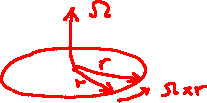 Ω
r
r
Ω×r